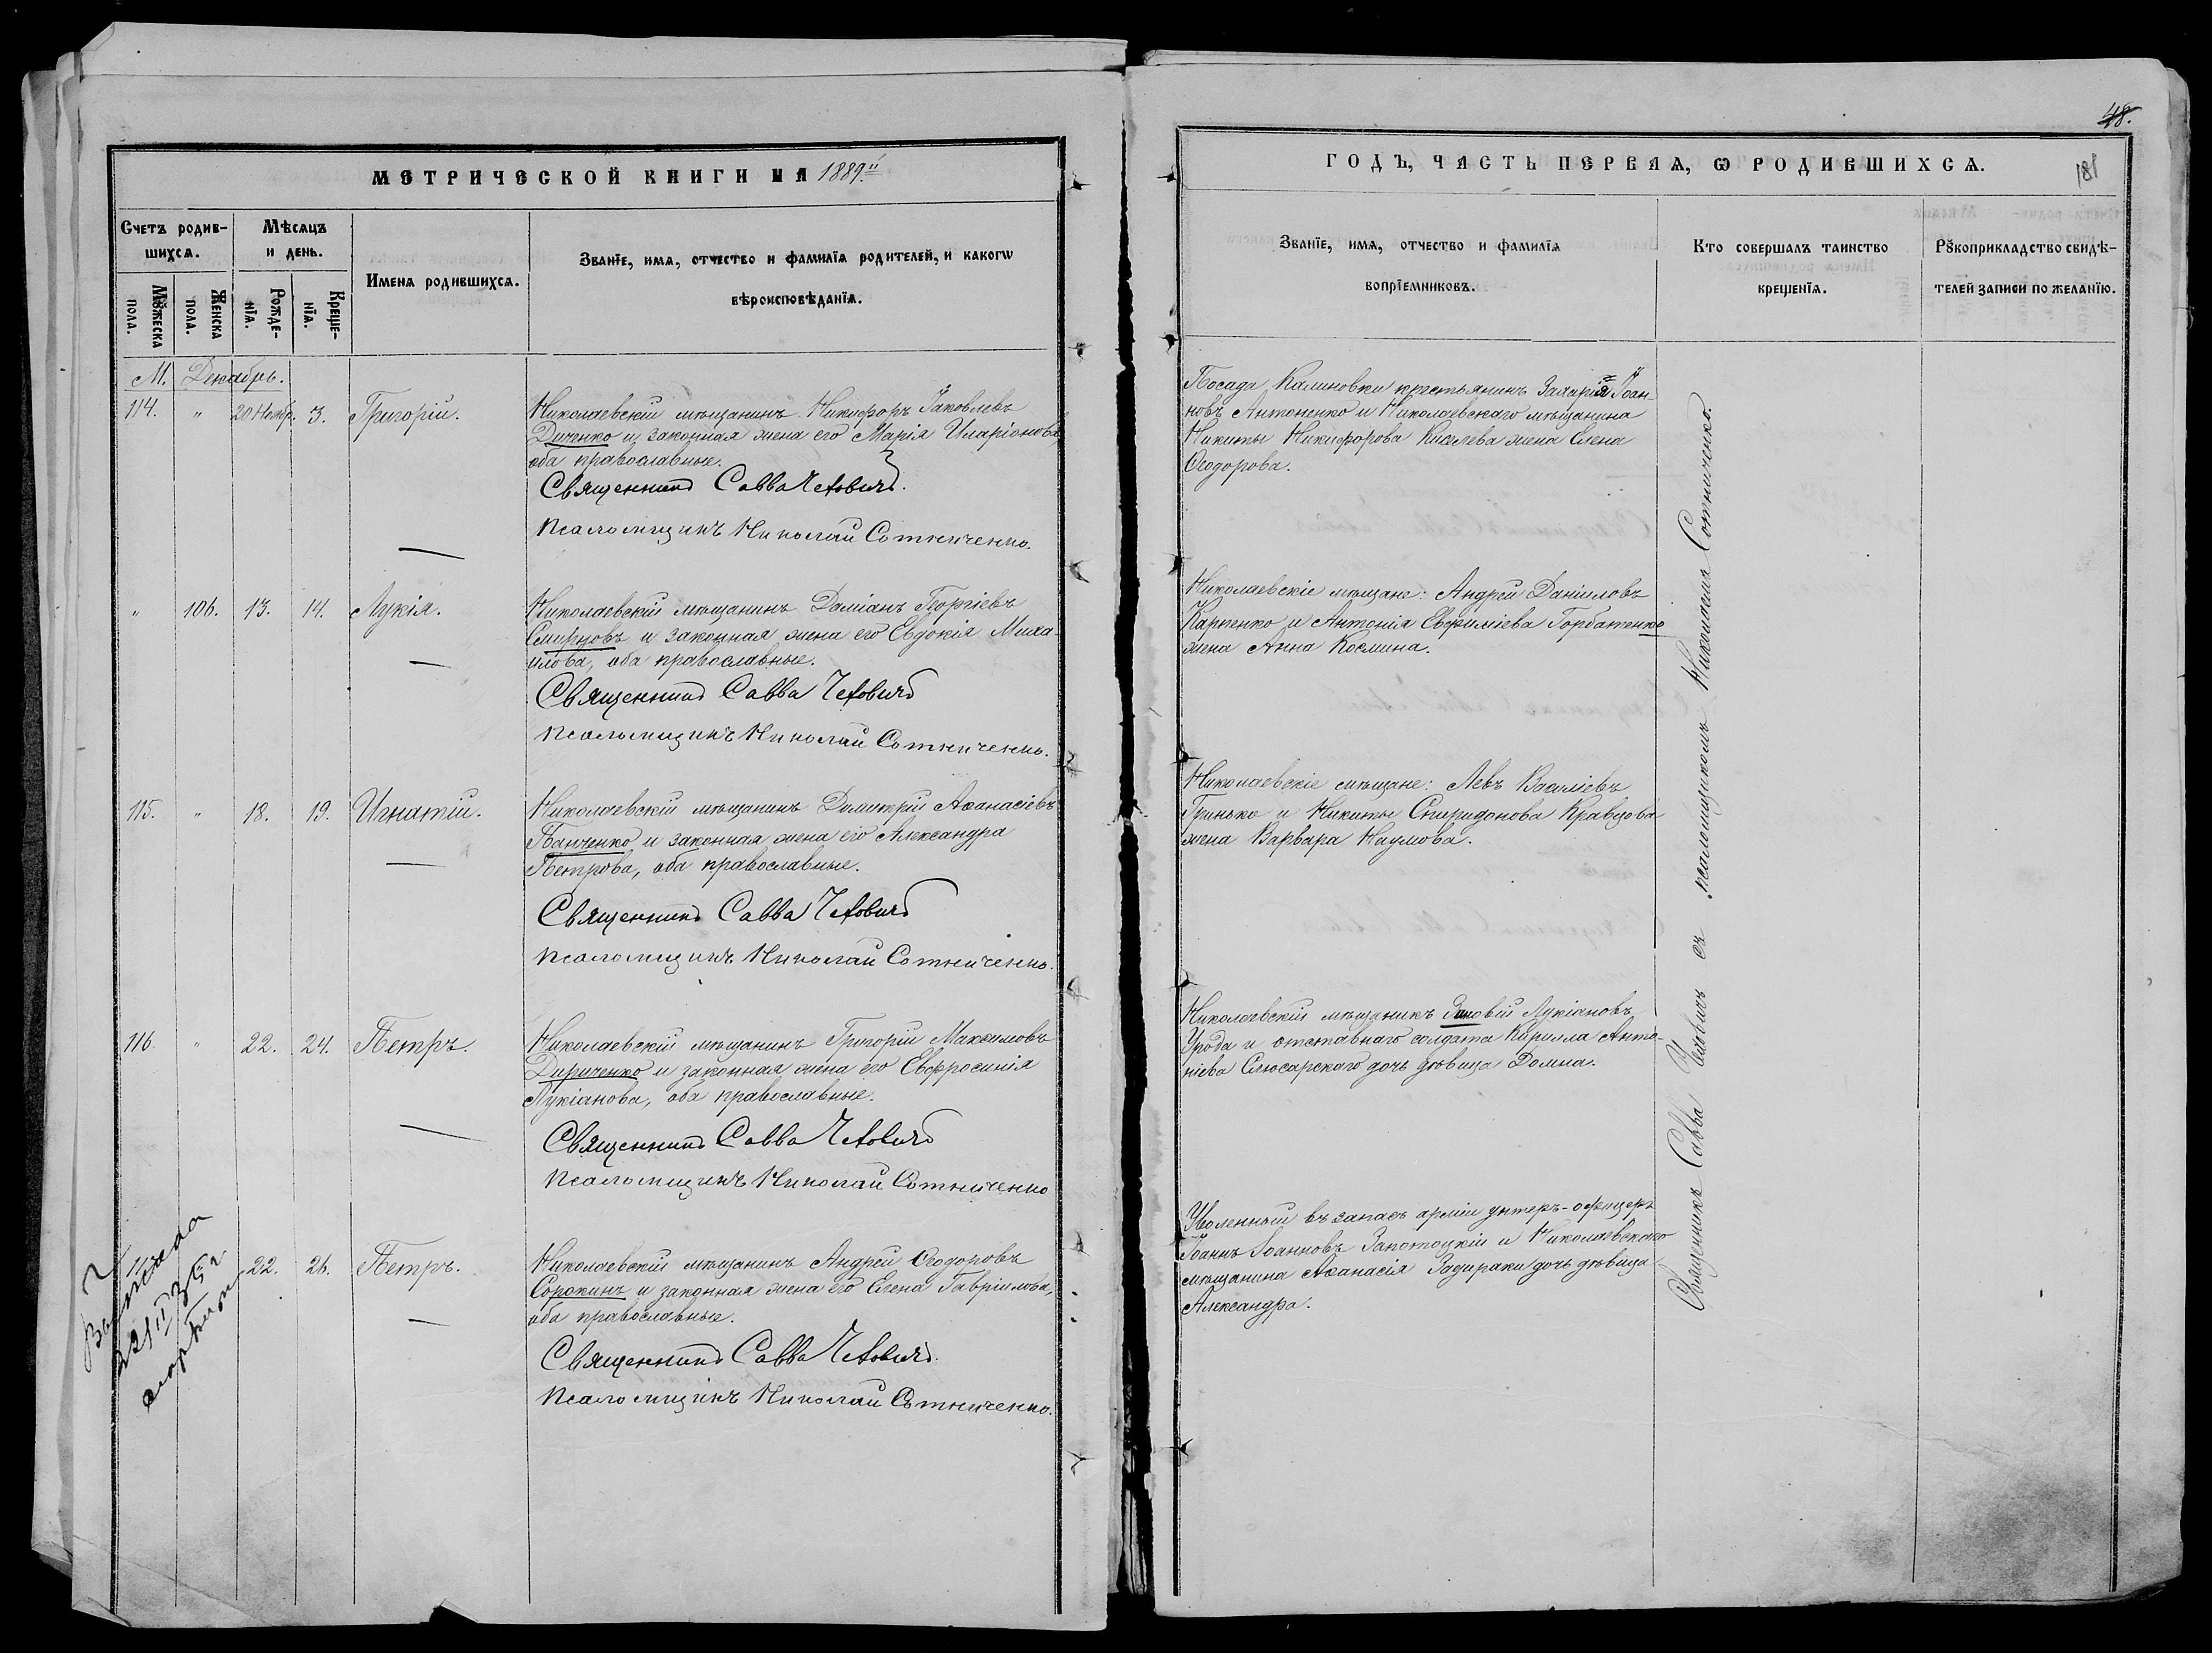 МЕТРИЧЕСКОЙ КНИГИ НА 1889й
Счетъ родив-
шихся.
Мѣсяцъ
и день.
Имена родившихся.
Званїе, имя, отчество и фамилїя родителей, и какогѡ
вѣроисповѣданїя.
Мꙋжеска
пола.
Женска
пола.
Рожде-
нїя.
Креще-
нїя.
М. Декабрь.
114. " 20 Ноябр. 3. Григорій.
Николаевскій мѣщанинъ Никифоръ Іаковлевъ
Диченко и законная жена его Марія Иларіонова
оба православные.
Священникъ Савва Чехович.
Псаломщикъ Николай Сотниченко.
" 106. 13. 14. Лукія.
Николаевскій мѣщанинъ Даміанъ Георгіевъ
Смирновъ и законная жена его Евдокія Миха-
илова, оба православные.
Священникъ Савва Чехович
Псаломщикъ Николай Сотниченко.
115. " 18. 19. Игнатій.
Николаевскій мѣщанинъ Димитрій Аѳанасіевъ
Панченко и законная жена его Александра
Петрова, оба православные.
Священникъ Савва Чехович
Псаломщикъ Николай Сотниченко.
116. " 22. 24. Петръ.
Николаевскій мѣщанинъ Григорій Максимовъ
Дириченко и законная жена его Евфросинія
Лукіанова, оба православные.
Священникъ Савва Чехович
Псаломщикъ Николай Сотниченко
22. 26. Петръ.
Николаевскій мѣщанинъ Андрей Ѳеодоровъ
Сорокинъ и законная жена его Елена Гавріилова,
оба православные.
Священникъ Савва Чехович.
Псаломщикъ Николай Сотниченко.
48.
181
ГОДЪ, ЧАСТЬ ПЕРВАЯ, Ѡ РОДИВШИХСЯ.
Званїе, имя, отчество и фамилїя
воприемниковъ.
Кто совершалъ таинство
крещенїя.
Рꙋкоприкладство свидѣ-
телей записи по желанїю.
Посада Калиновки крестьянинъ Захарія Іоан-
новъ Антоненко и Николаевскаго мѣщанина
Никиты Никифорова Киселева жена Елена
Ѳеодорова.
Николаевскіе мѣщане: Андрей Даніиловъ
Карпенко и Антонія Евфиміева Горбатенко
жена Анна Космина.
Николаевскіе мѣщане: Левъ Василіевъ
Гринько и Никиты Спиридонова Кравцова
жена Варвара Наумова.
Николаевскій мѣщанинъ Зиновій Лукіановъ
Урода и отставнаго солдата Кирилла Анто-
ніева Слюсарскаго дочь дѣвица Домна.
Уволенный въ запасъ арміи унтеръ-офицеръ
Іоаннъ Іоанновъ Запотоцкій и Николаевскаго
мѣщанина Аѳанасія Задираки дочь дѣвица
Александра.
Священникъ Савва Чеховичъ съ псаломщикомъ Николаемъ Сотниченко.